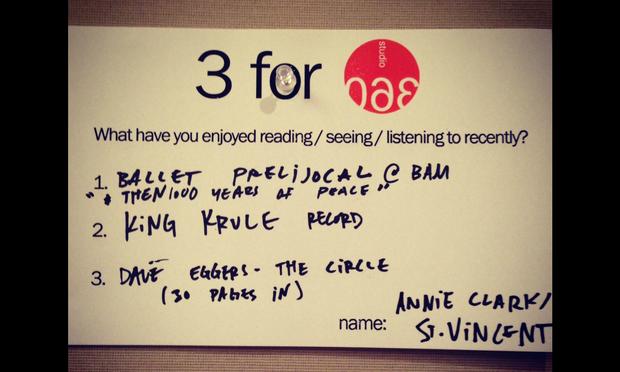 3 for studio 360
What have you enjoyed reading/seeing/listening to recently?
1. BALLET PRELIJOCAL @ BAM
"& THEN 1000 YEARS OF PEACE"
2. KING KRULE RECORD
3. DAVE EGGERS - THE CIRCLE
(30 PAGES IN)
name: ANNIE CLARK/
ST. VINCENT